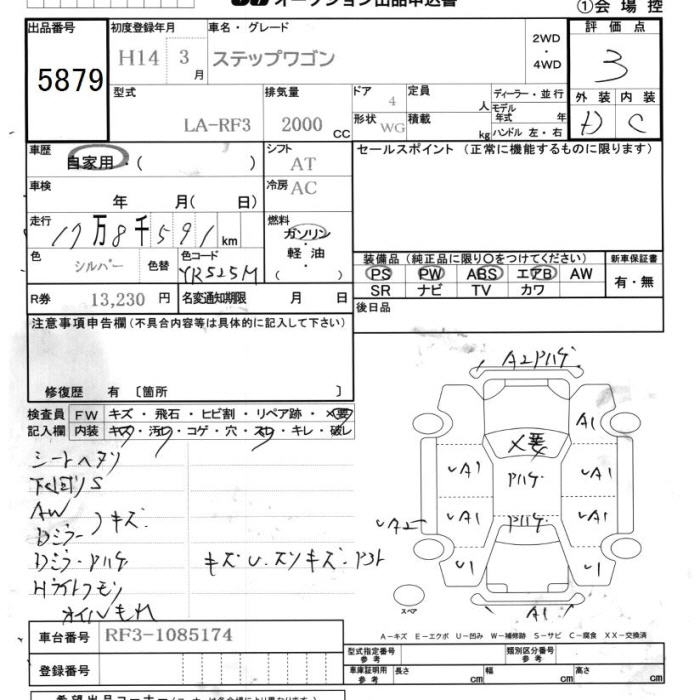 オークション出品申込書
①会場控
出品番号 初度登録年月 車名・グレード 評価点
5879 H14 3月 ステップワゴン 2WD・4WD 3
型式 排気量 ドア 定員 ディーラー・並行 外装 内装
LA-RF3 2000CC 4 人 モデル年式 年 D C
形状 WG 積載 kg ハンドル 左・右
車歴 シフト セールスポイント (正常に機能するものに限ります)
自家用・( ) AT
車検 冷房 AC
年 月( 日)
走行 燃料
17万8千591km ガソリン・軽油・( )
色 色替 色コード 装備品(純正品に限り○をつけてください) 新車保証書
シルバー YR525M PS PW ABS エアB AW 有・無
SR ナビ TV カワ
R券 13,230円 名変通知期限 月 日 後日品
注意事項申告欄(不具合内容等は具体的に記入して下さい)
修復歴 有 〔箇所 〕
検査員 FW キズ・飛石・ヒビ割・リペア跡・X要
記入欄 内装 キズ・汚レ・コゲ・穴・スレ・キレ・破レ
シートヘタリ
下回りS
AW
Dミラー キズ
Dミラー・Pハゲ
Hライトクモリ
オイルもれ
キズ U.
A2 Pハゲ
A1
X要
UA1 Pハゲ UA1
UA1 Pハゲ UA1
UA2
U1 U1
A1
スペア
A-キズ E-エクボ U-凹み W-補修跡 S-サビ C-腐食 XX-交換済
車台番号 RF3-1085174
型式指定番号 参考 類別区分番号 参考
登録番号 車庫証明用 参考 長さ cm 幅 cm 高さ cm